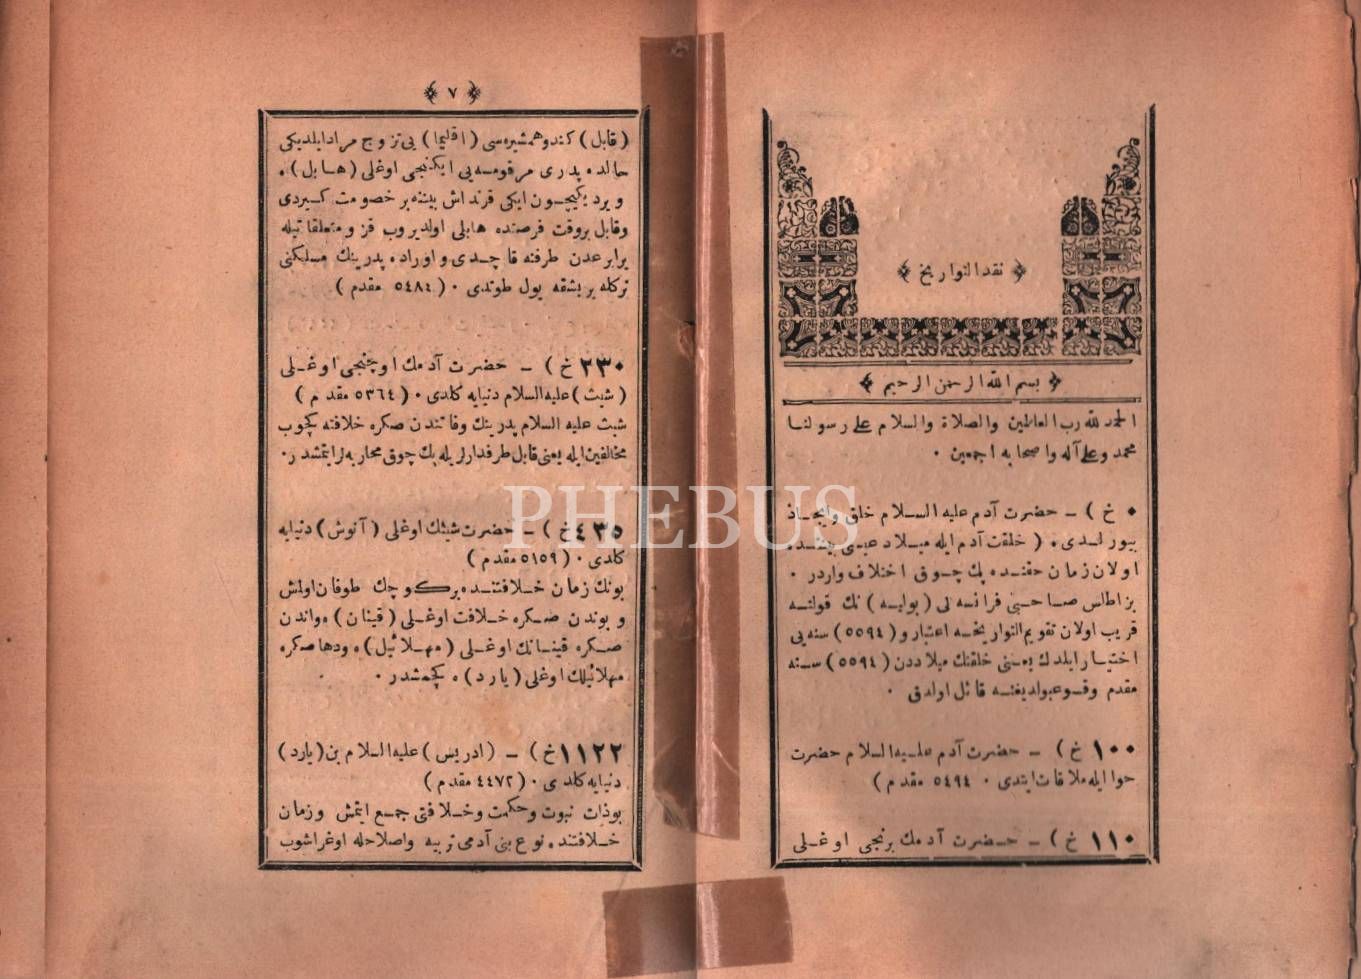 ﴿ نقد التواريخ ﴾
﴿ بسم الله الرحمن الرحيم ﴾
الحمد لله رب العالمين والصلاة والسلام على رسولنا
محمد وعلى آله واصحابه اجمعين ٠
٠ خ ) – حضرت آدم عليه السلام خلق وايجاد
بيورلدى ٠ ( خلقت آدم ايله ميلاد عيسى بيننده
اولان زمان حقنده پك چوق اختلاف واردر ٠
بز اطلس صاحبى فرانسه لى ( بوليه ) نك قولنه
قريب اولان تقويم التواريخه اعتبار و ( ٥٥٩٤ ) سنه يى
اختيار ايلدك يعنى خلقتك ميلاددن ( ٥٥٩٤ ) سنه
مقدم وقوعبولديغنه قائل اولدق ٠
١٠٠ خ ) – حضرت آدم عليه السلام حضرت
حوا ايله ملاقات ايتدى ٠ ٥٤٩٤ مقدم )
١١٠ خ ) – حضرت آدمك برنجى اوغلى
﴿ ٧ ﴾
( قابل ) كندو همشيره سى ( اقليما ) يى تزوج مراد ايلديكى
حالده پدرى مرقومه يى ايكنجى اوغلى ( هابل ) ه
ويرديكيچون ايكى قرنداش بيننه بر خصومت كيردى
وقابل بر وقت فرصنده هابلى اولديروب قز ومتعلقاتيله
برابر عدن طرفنه قاچدى و اوراده پدرينك مسلكنى
تركله بر بشقه يول طوتدى ٠ ( ٥٤٨٤ مقدم )
٢٣٠ خ ) – حضرت آدمك اوچنجى اوغلى
( شيث ) عليه السلام دنيايه كلدى ٠ ( ٥٣٦٤ مقدم )
شيث عليه السلام پدرينك وفاتندن صكره خلافته كچوب
مخالفين ايله يعنى قابل طرفدارلريله پك چوق محاربه لر ايتمشدر ٠
٤٣٥ خ ) – حضرت شيثك اوغلى ( آنوش ) دنيايه
كلدى ٠ ( ٥١٥٩ مقدم )
بونك زمان خلافتنده بر كوچك طوفان اولمش
و بوندن صكره خلافت اوغلى ( قينان ) ه واندن
صكره قينانك اوغلى ( مهلائيل ) ه ودها صكره
مهلائيلك اوغلى ( يارد ) ه كچمشدر ٠
١١٢٢ خ ) – ( ادريس ) عليه السلام بن ( يارد )
دنيايه كلدى ٠ ( ٤٤٧٢ مقدم )
بوذات نبوت وحكمت وخلافتى جمع ايتمش وزمان
خلافتنده نوع بنى آدمى تربيه واصلاحله اوغراشوب
PHEBUS